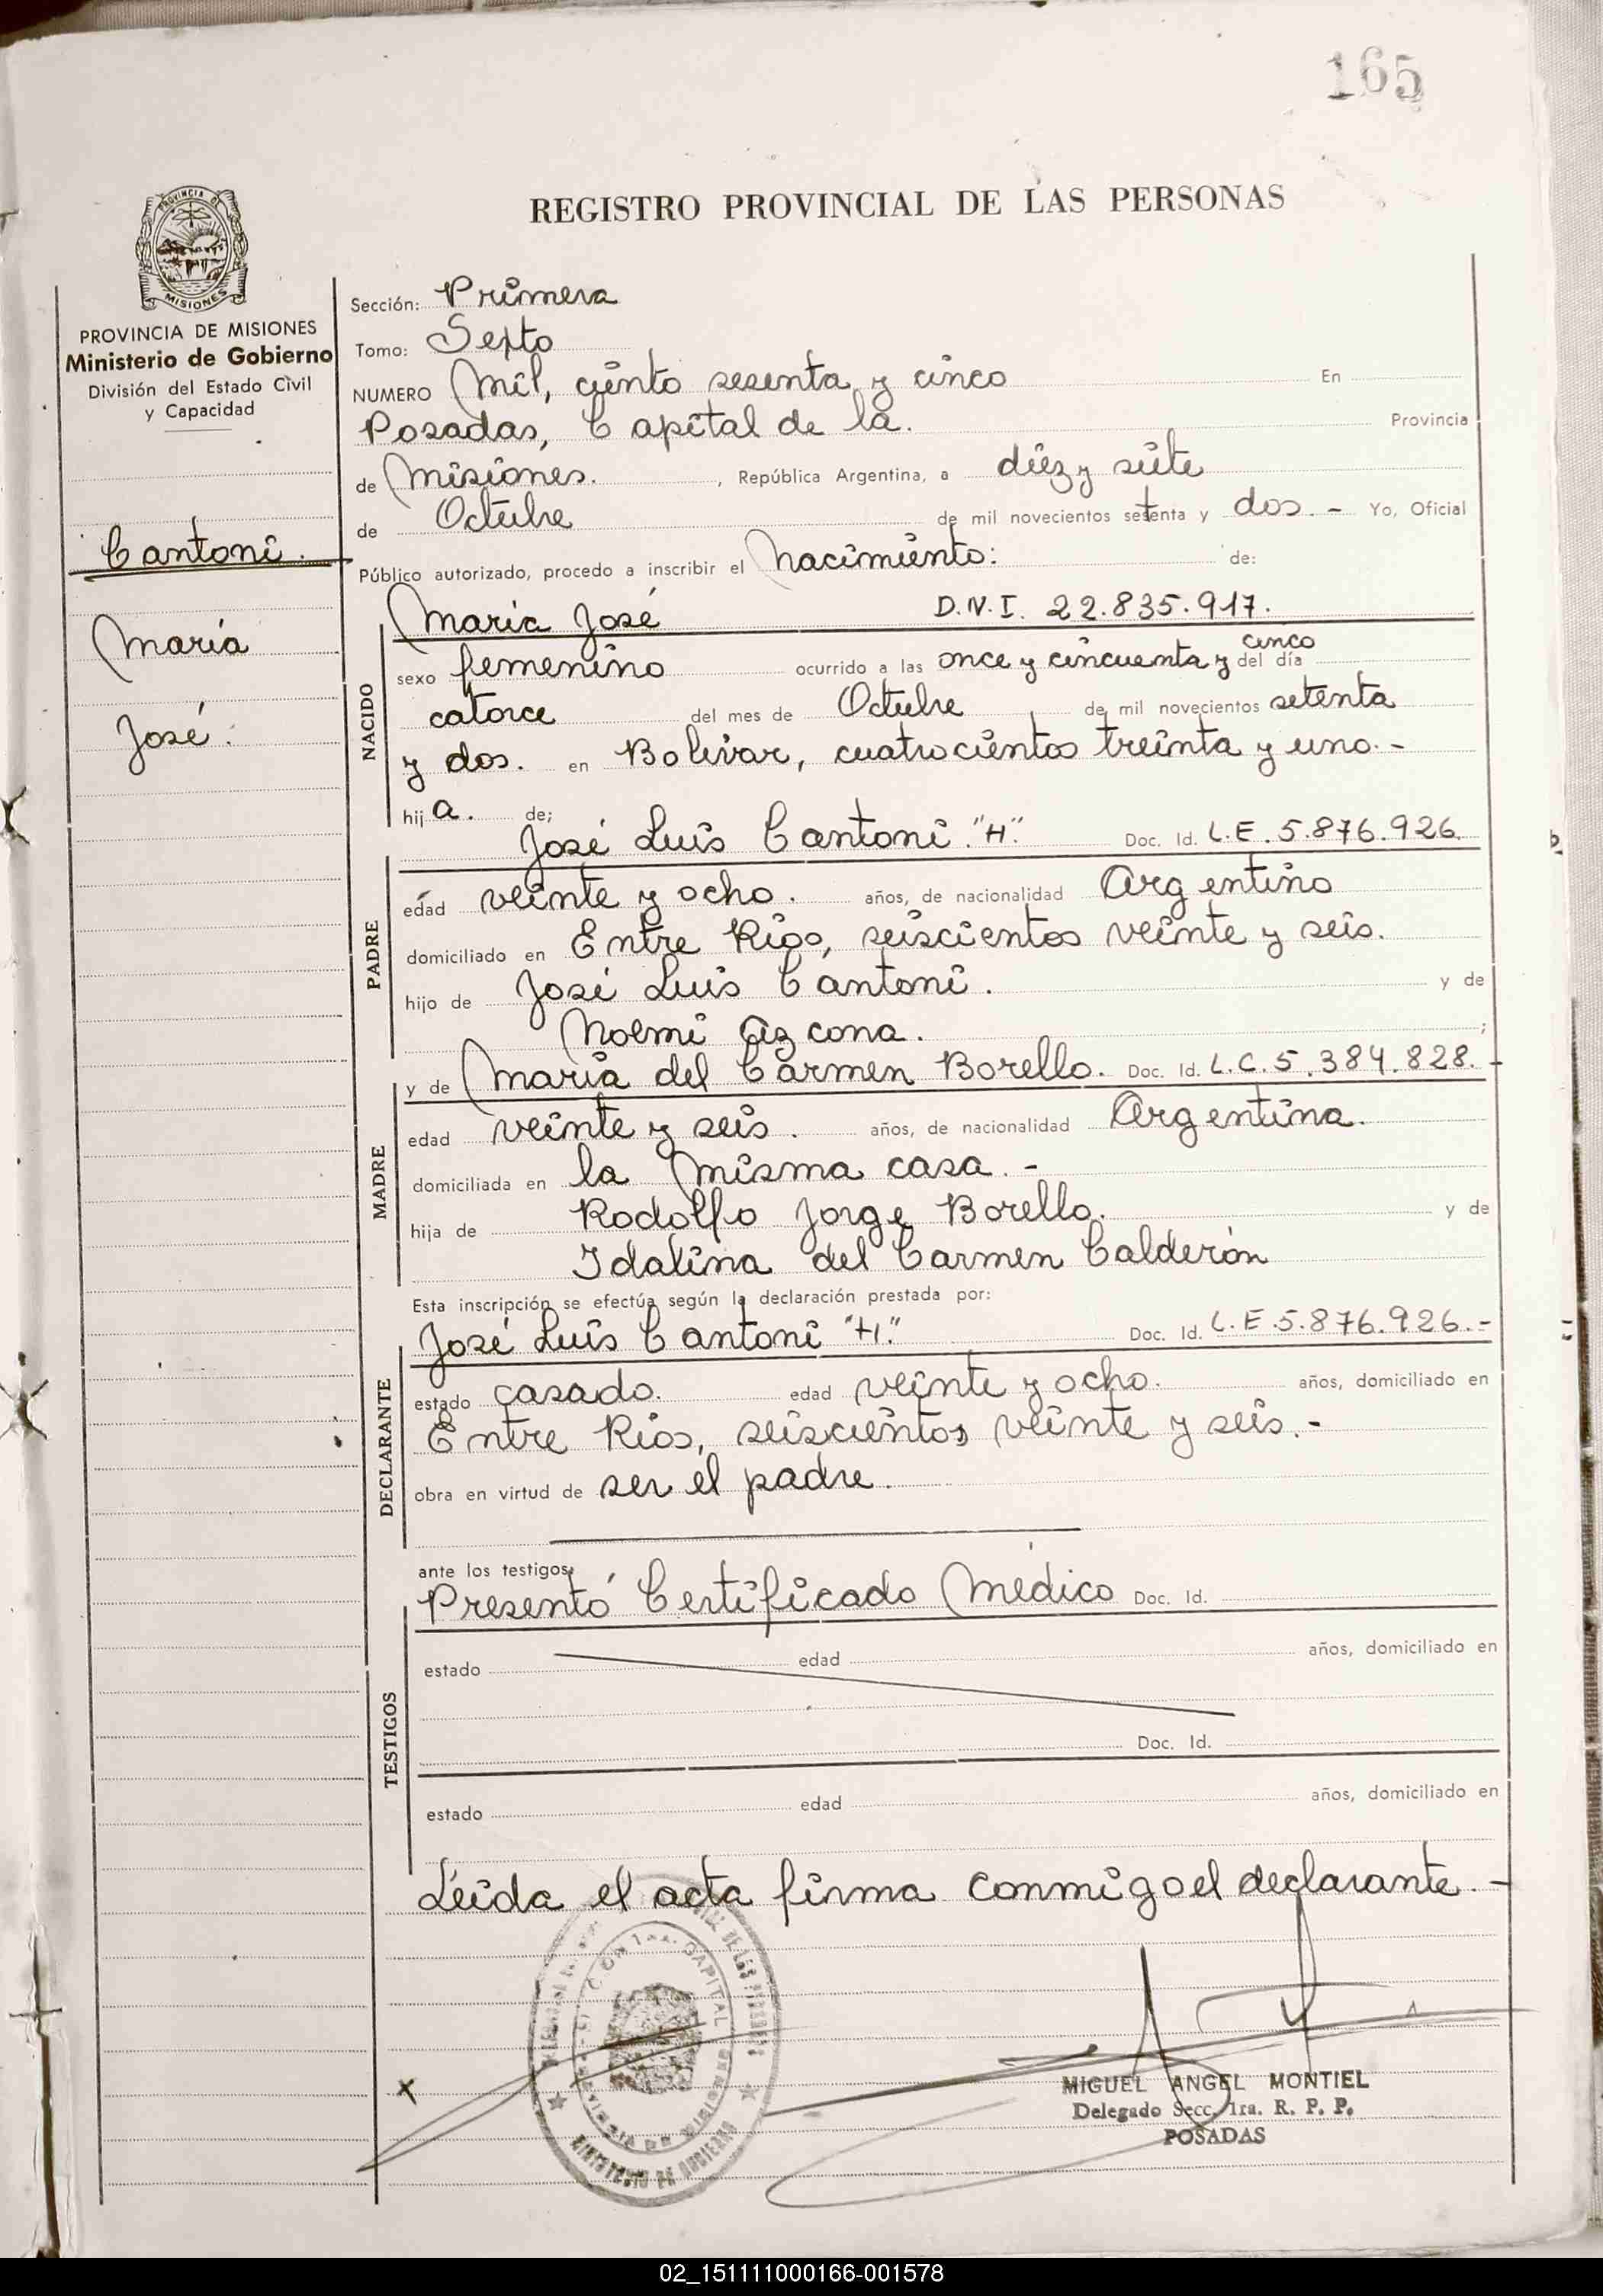 165
REGISTRO PROVINCIAL DE LAS PERSONAS
PROVINCIA DE MISIONES
Ministerio de Gobierno
División del Estado Civil
y Capacidad
Cantoni.
María
José.
Sección: Primera
Tomo: Sexto
NUMERO Mil, ciento sesenta y cinco En
Posadas, Capital de la. Provincia
de Misiones. , República Argentina, a diez y siete
de Octubre de mil novecientos setenta y dos. - Yo, Oficial
Público autorizado, procedo a inscribir el Nacimiento: de:
NACIDO
María José D.N.I. 22.835.917.
sexo femenino ocurrido a las once y cincuenta y cinco del día
catorce del mes de Octubre de mil novecientos setenta
y dos. en Bolívar, cuatrocientos treinta y uno. -
hij a. de;
PADRE
José Luis Cantoni "H". Doc. Id. L.E. 5.876.926.
edad veinte y ocho. años, de nacionalidad Argentino
domiciliado en Entre Ríos, seiscientos veinte y seis.
hijo de José Luis Cantoni. y de
Noemi Azcona. ;
MADRE
y de María del Carmen Borello. Doc. Id. L.C. 5.384.828. -
edad veinte y seis. años, de nacionalidad Argentina.
domiciliada en la misma casa. -
hija de Rodolfo Jorge Borello. y de
Idalina del Carmen Calderón
Esta inscripción se efectúa según la declaración prestada por:
DECLARANTE
José Luis Cantoni "H." Doc. Id. L.E. 5.876.926. -
estado casado. edad veinte y ocho. años, domiciliado en
Entre Ríos, seiscientos veinte y seis. -
obra en virtud de ser el padre.
ante los testigos:
TESTIGOS
Presentó Certificado Médico Doc. Id.
estado edad años, domiciliado en
Doc. Id.
estado edad años, domiciliado en
Leída el acta firma conmigo el declarante. -
x
MIGUEL ANGEL MONTIEL
Delegado Secc. 1ra. R. P. P.
POSADAS
MINISTERIO DE GOBIERNO
02_151111000166-001578